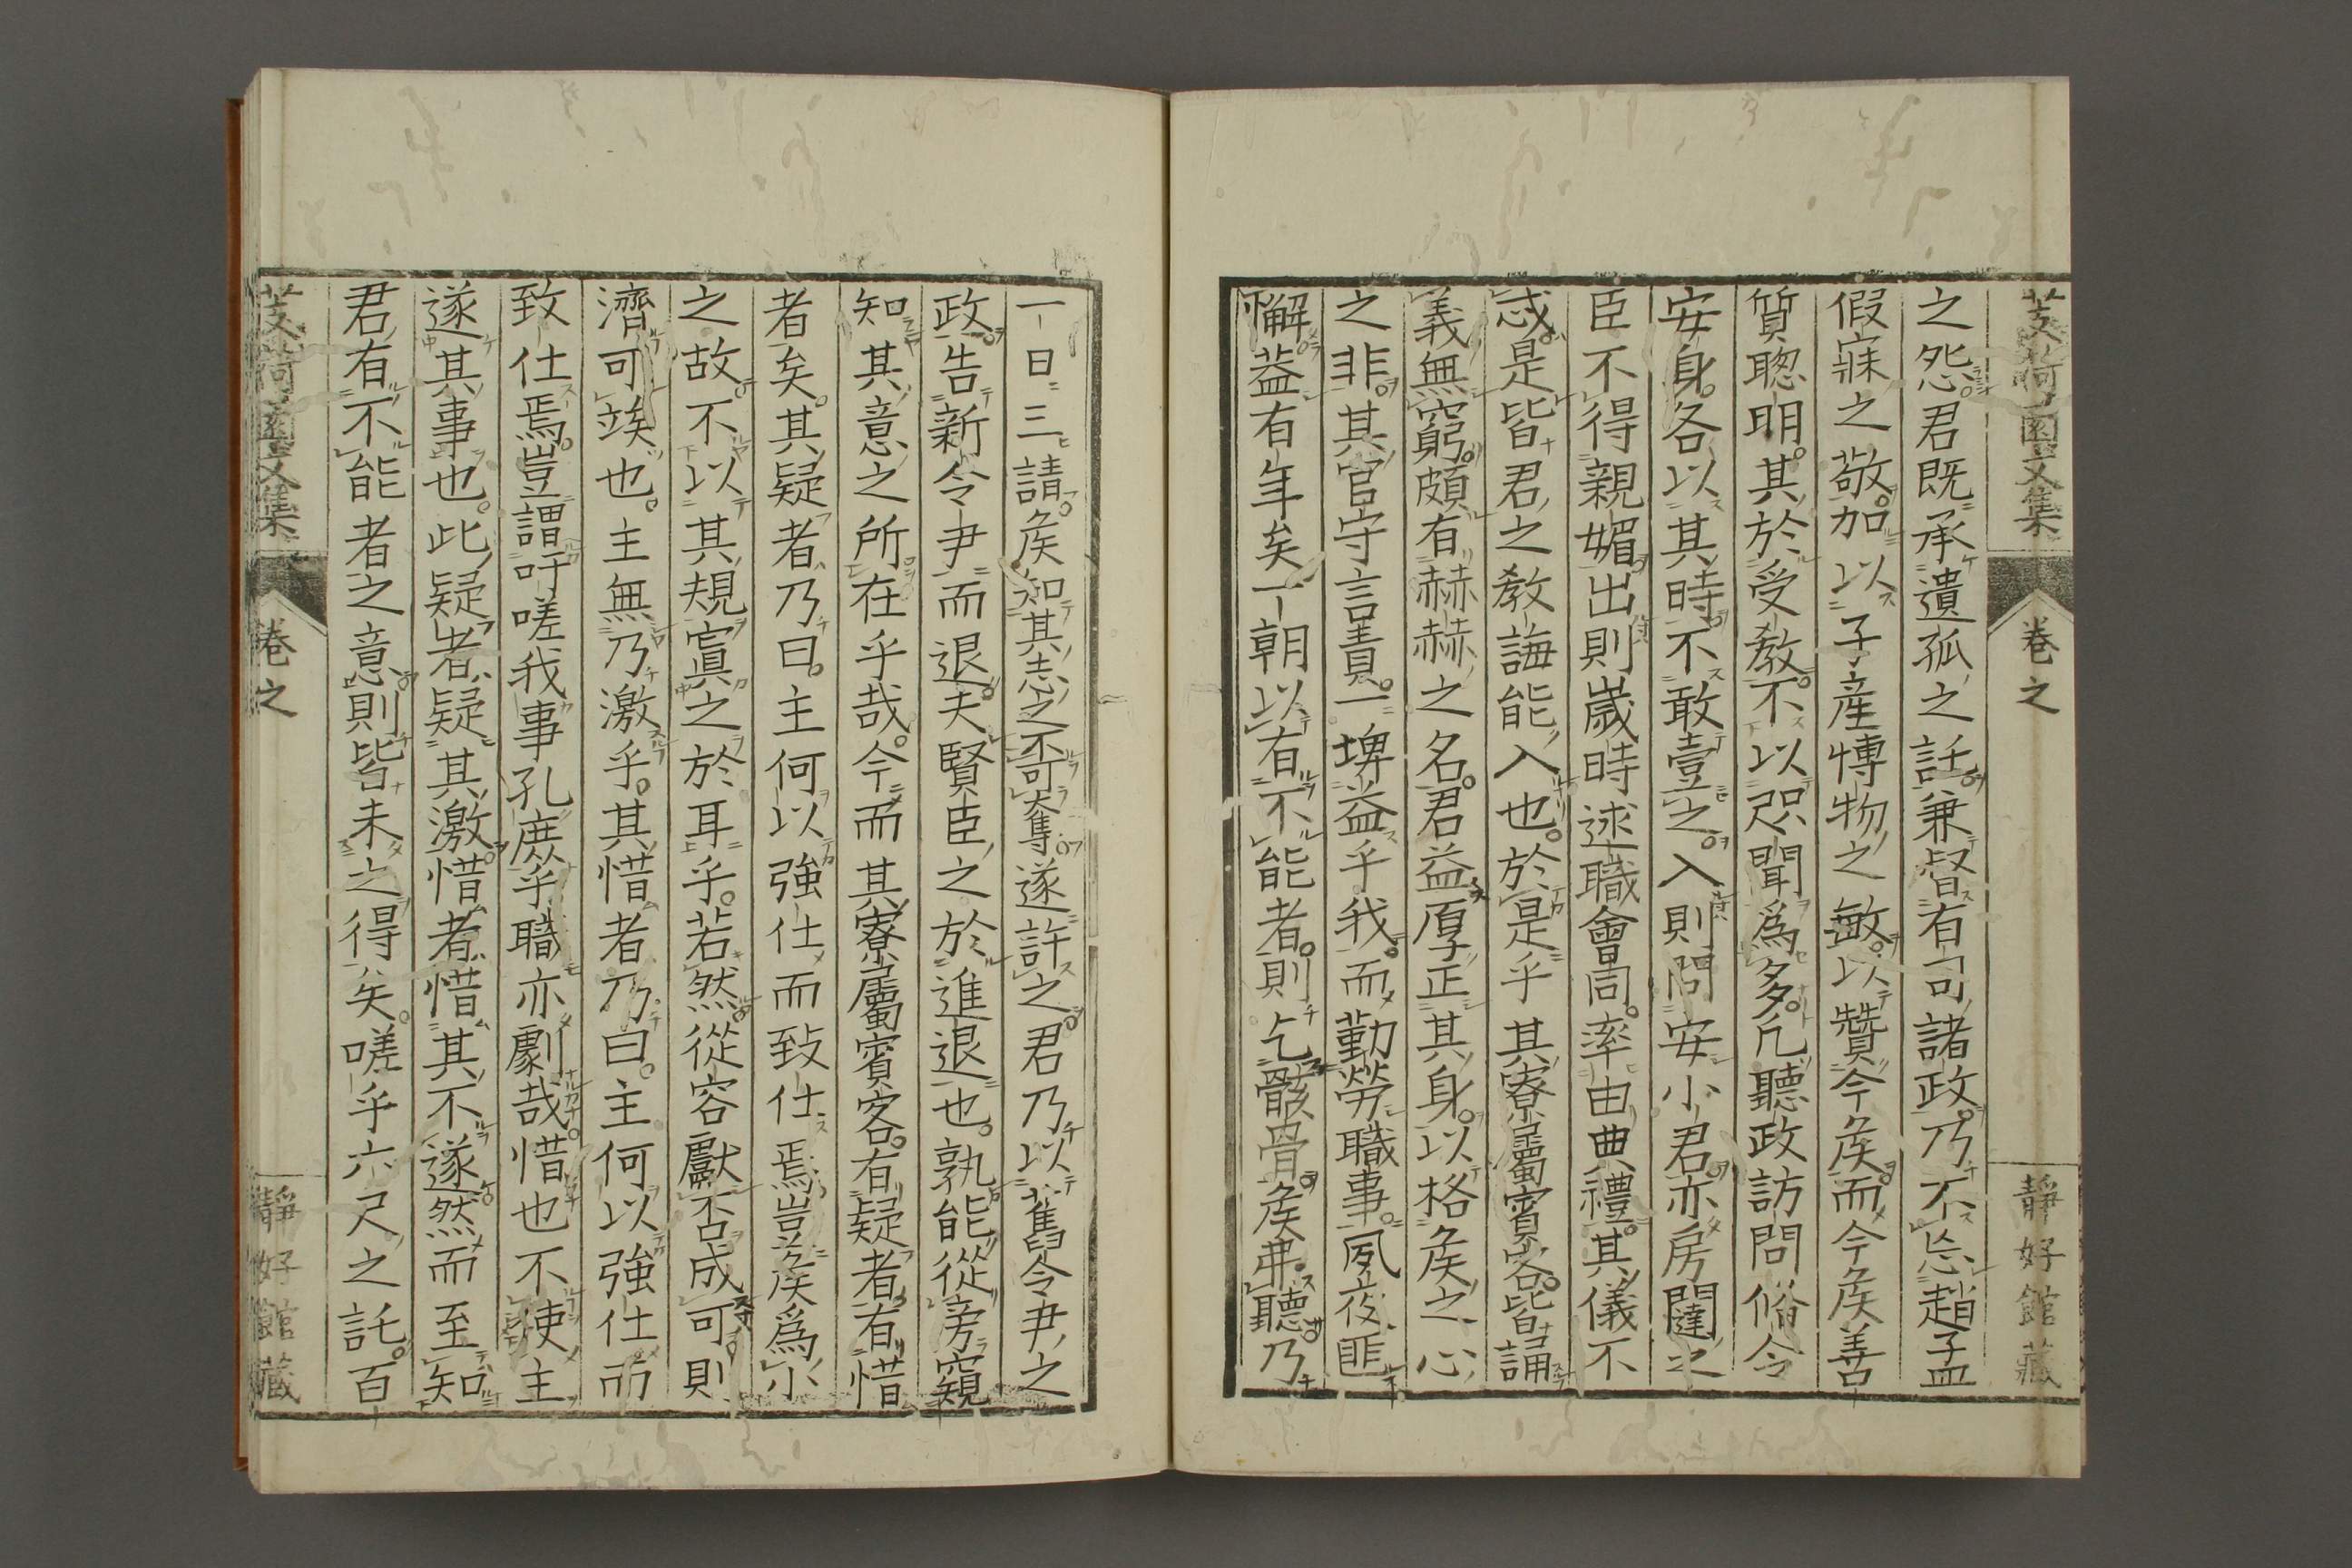 芰荷園文集
卷之
靜好館藏
之怨君既承遺孤之託兼督有司諸政乃不忘趙孟
假寐之敬加以子產博物之敏以贊今矦而今矦善
質聰明其於受教不以咫聞爲多凡聽政訪問脩令
安身各以其時不敢壹之入則問安小君亦房闥之
臣不得親媚出則歲時述職會同率由典禮其儀不
忒是皆君之教誨能入也於是乎其寮屬賓客皆誦
義無窮頗有赫赫之名君益厚正其身以格矦之心
之非其官守言責一埤益乎我而勤勞職事夙夜匪
懈益有年矣一朝以有不能者則乞骸骨矦弗聽乃
一日三請矦知其志之不可奪遂許之君乃以舊令尹之
政告新令尹而退夫賢臣之於進退也孰能從旁窺
知其意之所在乎哉今而其寮屬賓客有疑者有惜
者矣其疑者乃曰主何以強仕而致仕焉豈矦爲小
之故不以其規寘之於耳乎若然從容獻否成可則
濟可竢也主無乃激乎其惜者乃曰主何以強仕而
致仕焉豈謂吁嗟我事孔庶乎職亦劇哉惜也不使主
遂其事也此疑者疑其激惜者惜其不遂然而至知
君有不能者之意則皆未之得矣嗟乎六尺之託百
芰荷園文集
卷之
靜好館藏